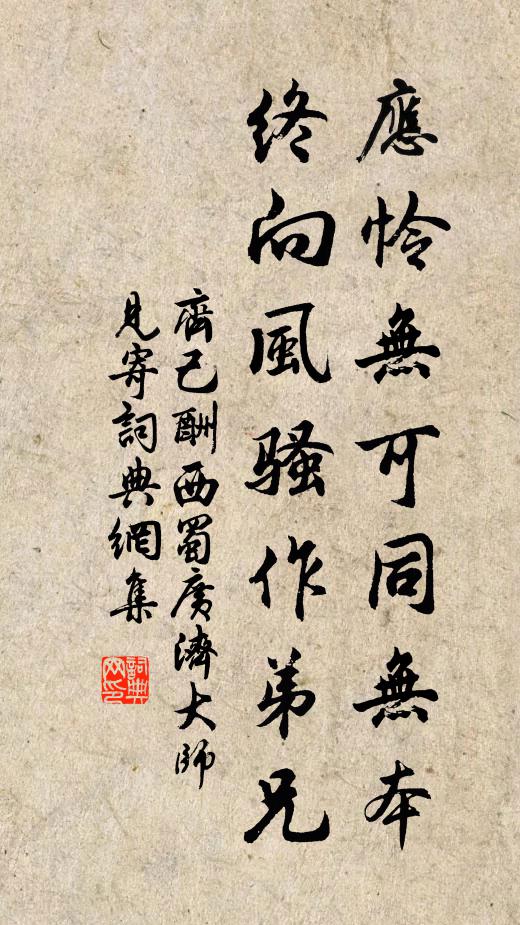 應怜無可同無本
終向風騷作弟兄
齊己酬西蜀廣濟大師
見寄詞典網集
詞典網印